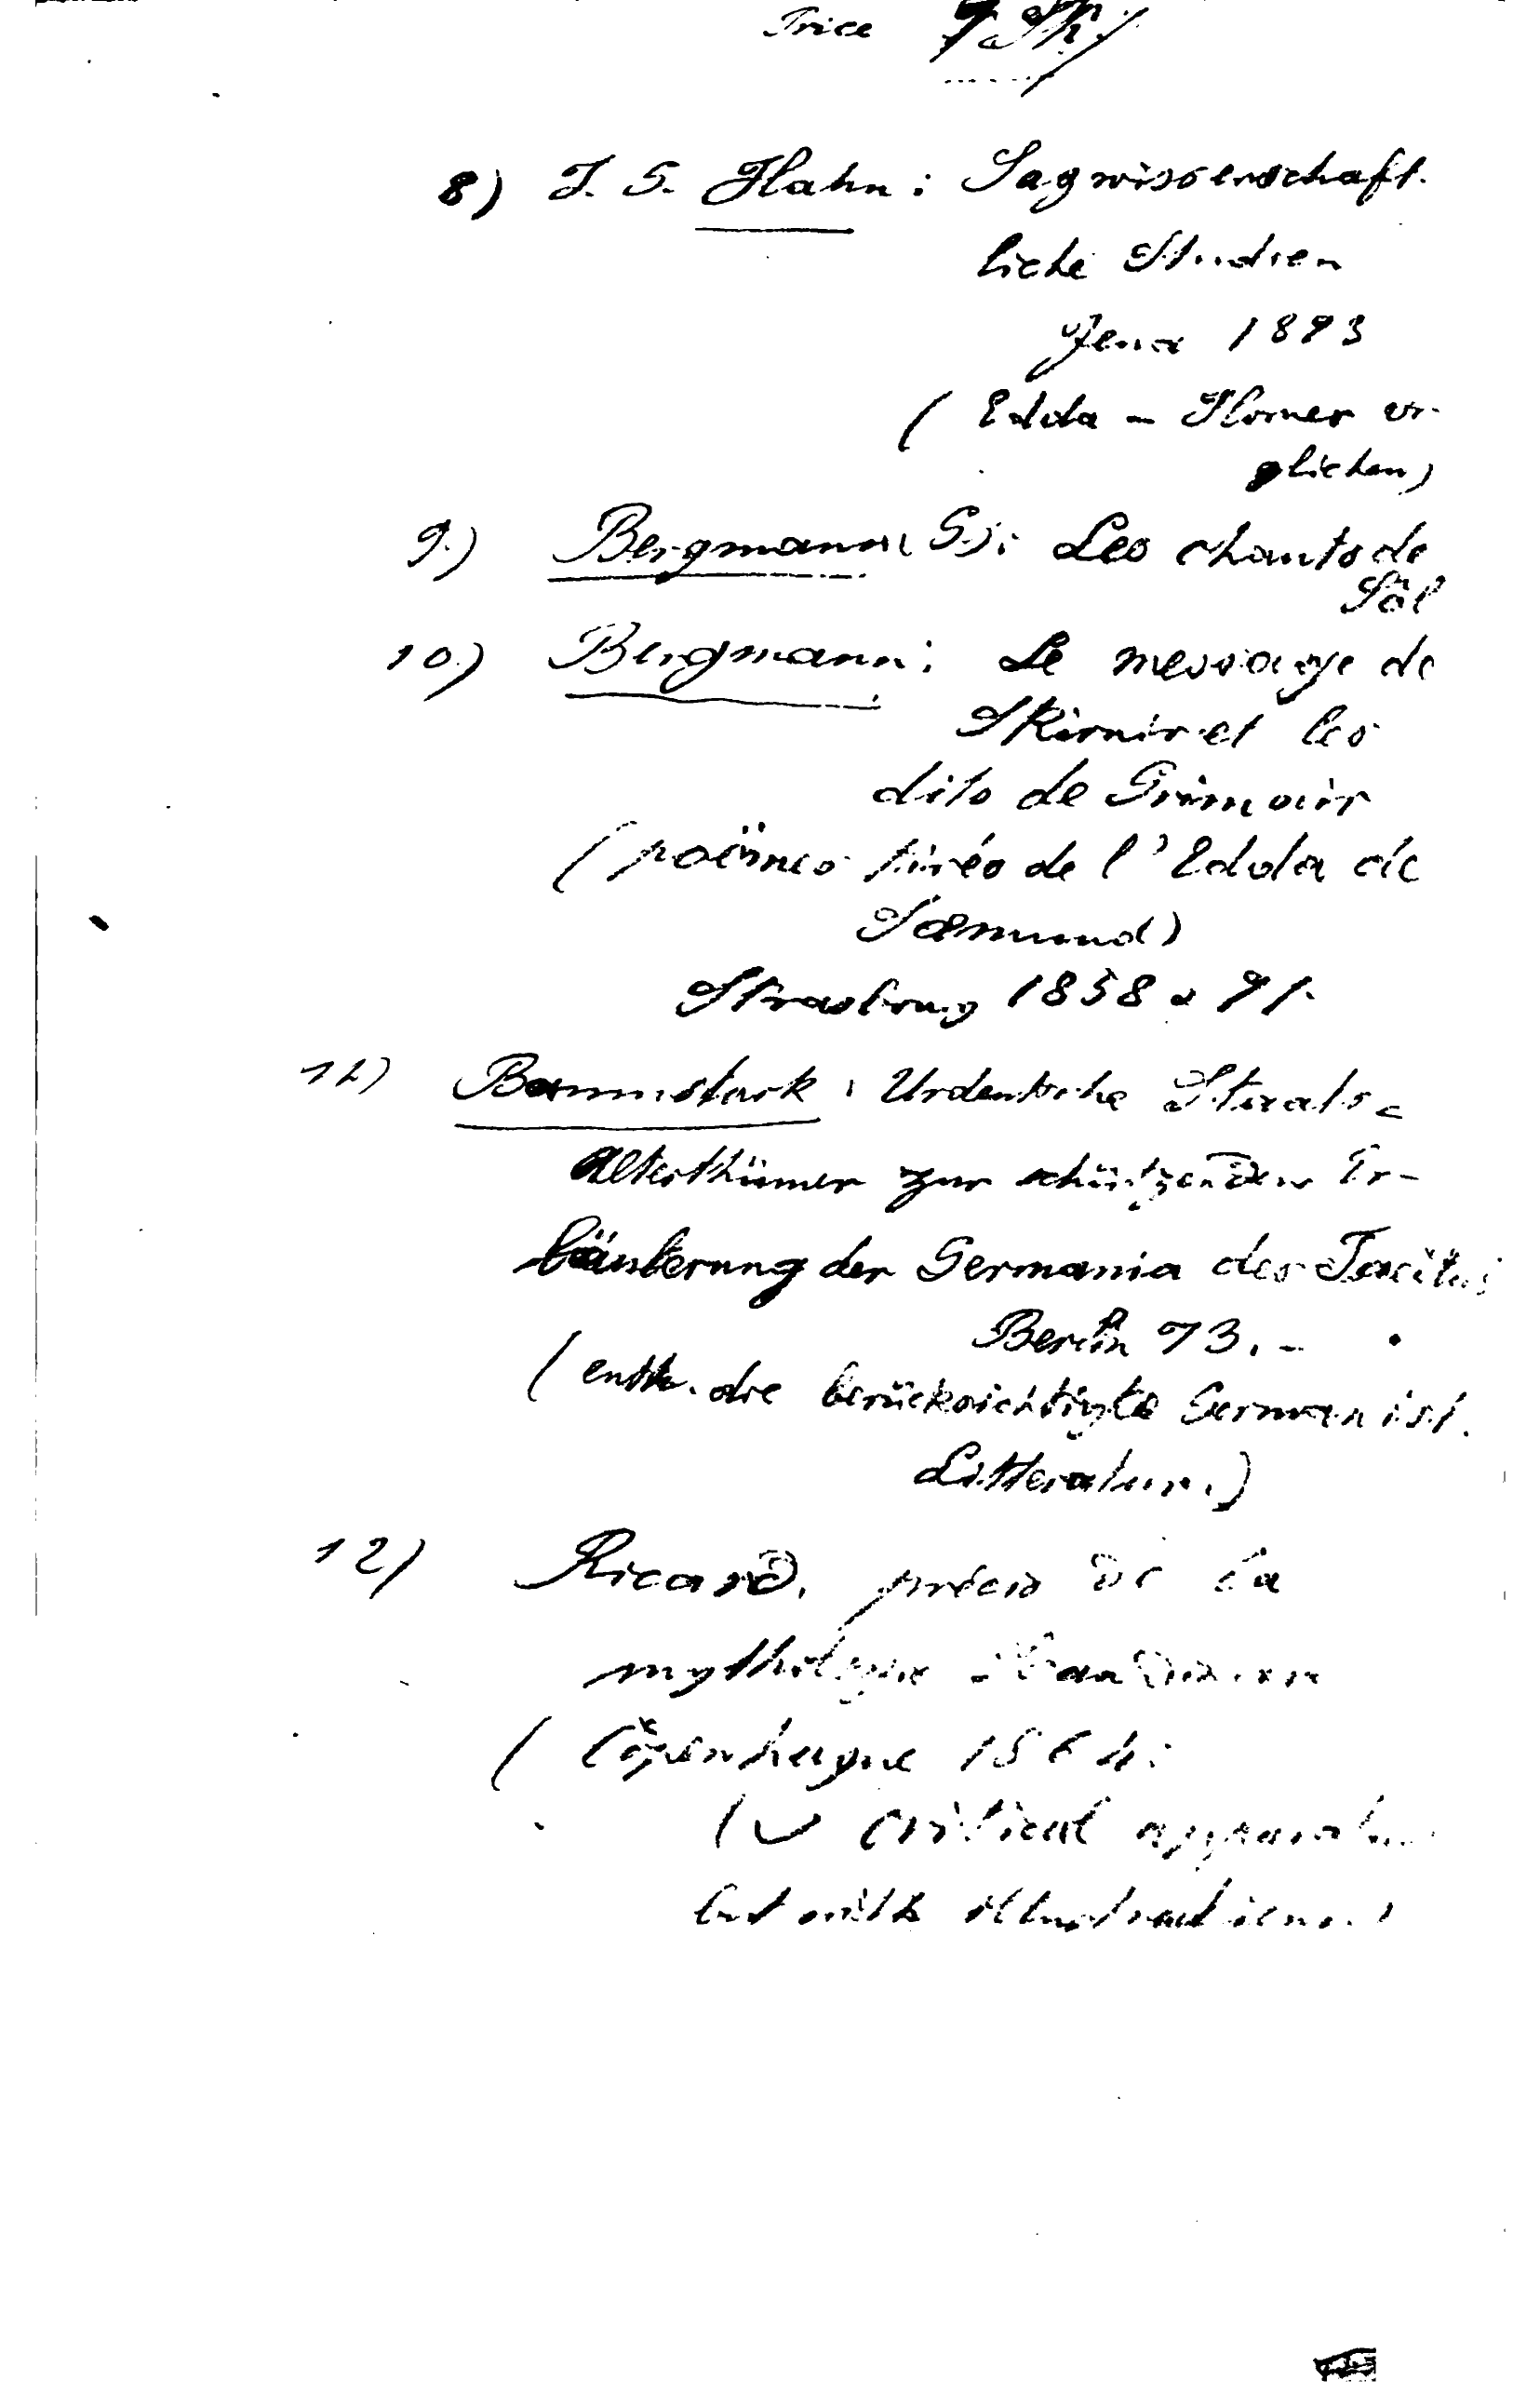 Price 7 Sh/
8) J. G. Hahn: Sagwissenschaft.
liche Studien
Jena 1873
(Edda - Homer ver-
glichen)
9.) Bergmann (G.): Les chants de
Sôl
10.) Bergmann: Le message de
Skirnir et les
dits de Grimnir
(poëmes tirés de l'Edda de
Sæmund)
Strasbourg 1858 a 71.
11) Baumstark: Urdeutsche Staats-
alterthümer zur schützenden Er-
läuterung der Germania des Tacitus
Berlin 73.-
(enth. die berücksichtigte Germanist.
Litteratur.)
12) Ricard, précis de la
mythologie Scandinave
(Copenhague 1864:
critical apparatus
but with illustrations.)